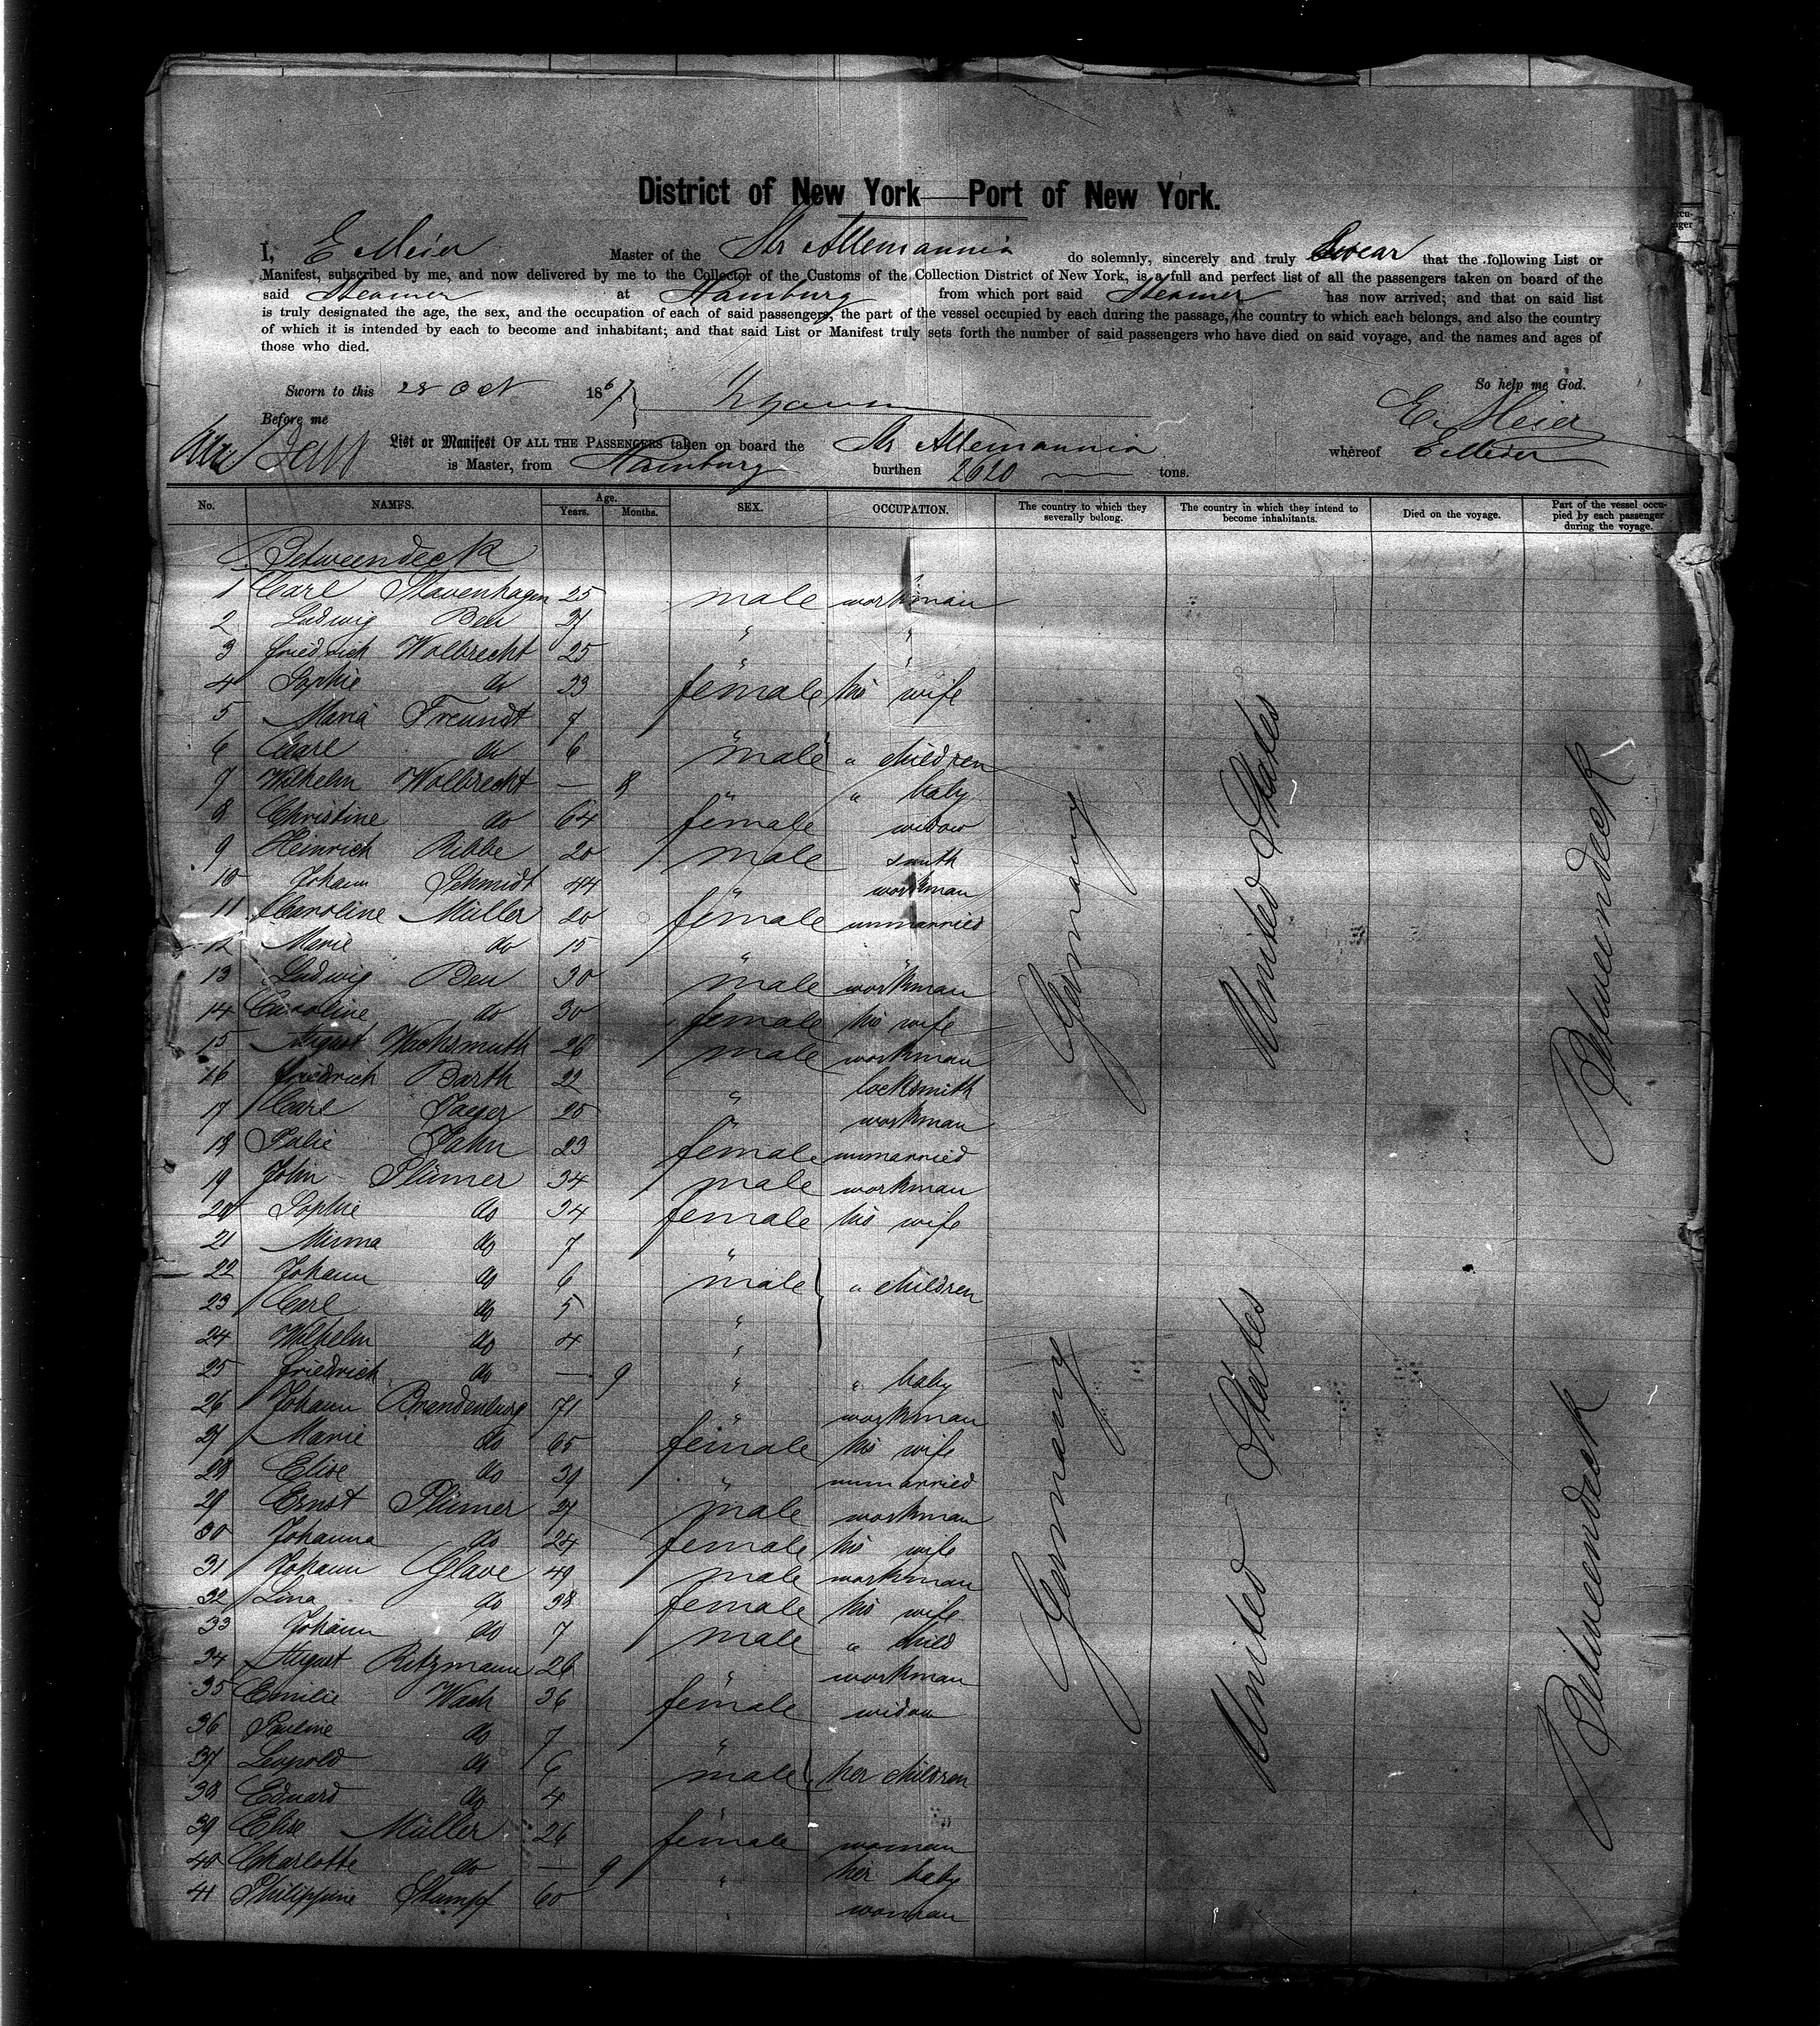 District of New York — Port of New York.
I, E Meier Master of the Str Allemannia do solemnly, sincerely and truly Swear that the following List or
Manifest, subscribed by me, and now delivered by me to the Collector of the Customs of the Collection District of New York, is a full and perfect list of all the passengers taken on board of the
said Steamer at Hamburg from which port said Steamer has now arrived; and that on said list
is truly designated the age, the sex, and the occupation of each of said passengers, the part of the vessel occupied by each during the passage, the country to which each belongs, and also the country
of which it is intended by each to become and inhabitant; and that said List or Manifest truly sets forth the number of said passengers who have died on said voyage, and the names and ages of
those who died.
So help me God.
Sworn to this 28 Oct 1867
E. Meier
Before me
List or Manifest OF ALL THE PASSENGERS taken on board the Str Allemannia whereof E Meier
is Master, from Hamburg burthen 2620 tons.
No. NAMES. Age. Years. Months. SEX. OCCUPATION. The country to which they severally belong. The country in which they intend to become inhabitants. Died on the voyage. Part of the vessel occupied by each passenger during the voyage.
Betweendeck
1 Carl Stavenhagen 25 male workman
2 Ludwig Beu 27 " "
3 Friedrich Wolbrecht 25 " "
4 Sophie do 23 female his wife
5 Maria Freundt 7 "
6 Carl do 6 male " children
7 Wilhelm Wolbrecht — 8 " " baby
8 Christine do 64 female widow
9 Heinrich Ribbe 20 male smith
10 Johann Schmidt 44 " workman
11 Caroline Müller 20 female unmarried
12 Marie do 15 " "
13 Ludwig Beu 30 male workman
14 Caroline do 30 female his wife
15 August Wachsmuth 26 male workman
16 Friedrich Barth 22 " locksmith
17 Carl Jaeger 25 " workman
18 Julie Jahn 23 female unmarried
19 John Plümer 34 male workman
20 Sophie do 34 female his wife
21 Minna do 7 "
22 Johann do 6 male " children
23 Carl do 5 "
24 Wilhelm do 4 "
25 Friedrich do — 9 " " baby
26 Johann Brandenburg 71 " workman
27 Marie do 65 female his wife
28 Elise do 39 " unmarried
29 Ernst Plümer 27 male workman
30 Johanna do 24 female his wife
31 Johann Glave 49 male workman
32 Lina do 38 female his wife
33 Johann do 7 male " child
34 August Ritzmann 26 " workman
35 Emilie Wach 36 female widow
36 Pauline do 7 "
37 Leopold do 6 male her children
38 Eduard do 4 "
39 Elise Müller 26 female woman
40 Charlotte do — 9 " her baby
41 Philippine Stumpf 60 " woman
Germany
United States
Betweendeck
Germany
United States
Betweendeck